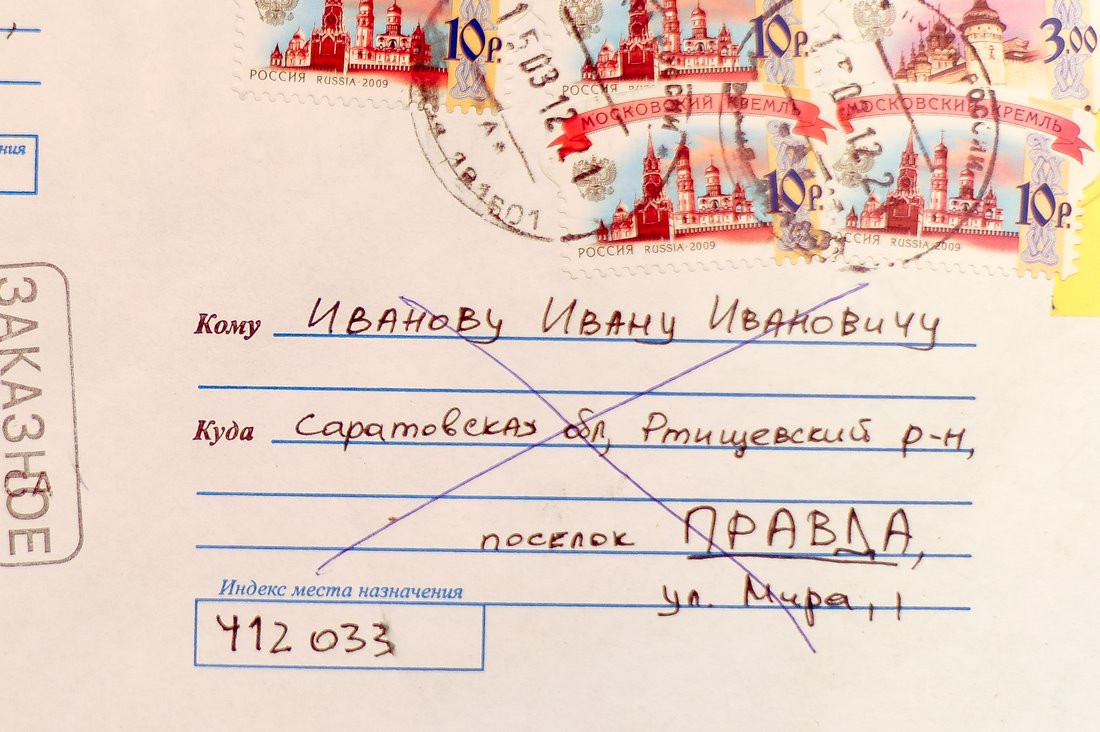 10 Р.
10 Р.
3.00
РОССИЯ RUSSIA·2009
РОССИЯ
МОСКОВСКИЙ КРЕМЛЬ
МОСКОВСКИЙ КРЕМЛЬ
15 03 12
181601
10 Р.
10 Р.
РОССИЯ RUSSIA·2009
РОССИЯ RUSSIA·2009
ЗАКАЗНОЕ
Кому Иванову Ивану Ивановичу
Куда Саратовская обл, Ртищевский р-н,
поселок ПРАВДА,
Индекс места назначения
ул. Мира, 1
412 033